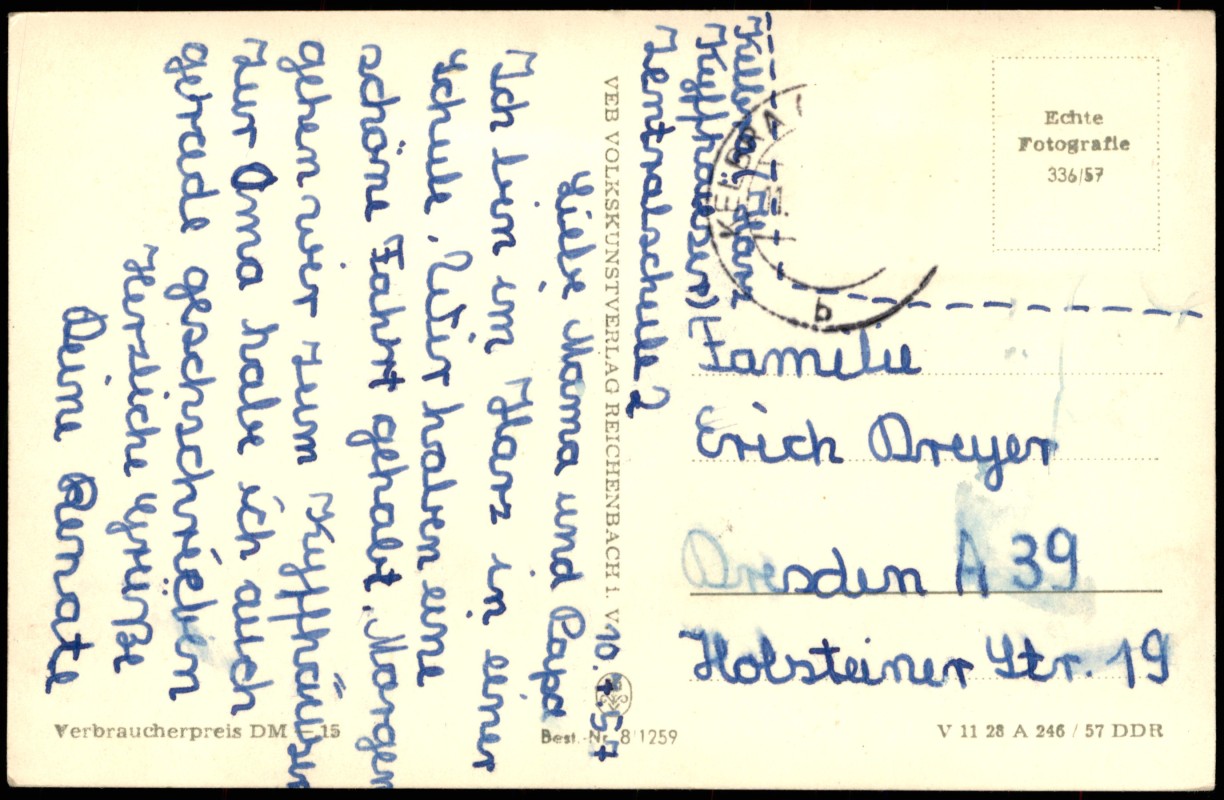 Kelbra/Harz
(Kyffhäuser)
Zentralschule 2
10.7.57
Liebe Mama und Papa
Ich bin im Harz in einer
Schule. Wir haben eine
schöne Fahrt gehabt. Morgen
gehen wir zum Kyffhäuser
Zur Oma habe ich auch
gerade geschschrieben
Herzliche Grüße
Deine Renate
VEB VOLKSKUNSTVERLAG REICHENBACH i. V.
Echte
Fotografie
336/57
KELBRA
11.
b
Familie
Erich Dreyer
Dresden A 39
Holsteiner Str. 19
Verbraucherpreis DM 15
Best.-Nr. 8 1259
V 11 28 A 246 / 57 DDR